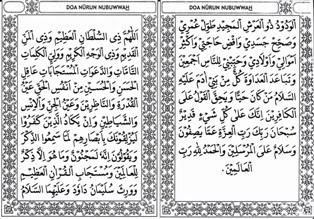 DOA NŪRUN NUBUWWAH
اَللّٰهُمَّ ذِى السُّلْطَانِ الْعَظِيْمِ وَذِى الْمَنِّ
الْقَدِيْمِ وَذِى الْوَجْهِ الْكَرِيْمِ وَوَلِيِّ الْكَلِمَاتِ
التَّامَّاتِ وَالدَّعَوَاتِ الْمُسْتَجَابَاتِ عَاقِلِ
الْحَسَنِ وَالْحُسَيْنِ مِنْ اَنْفُسِ الْحَقِّ عَيْنِ
الْقُدْرَةِ وَالنَّاظِرِيْنَ وَعَيْنِ الْجِنِّ وَالْاِنْسِ
وَالشَّيَاطِيْنِ وَاِنْ يَكَادُ الَّذِيْنَ كَفَرُوْا
لَيُزْلِقُوْنَكَ بِاَبْصَارِهِمْ لَمَّا سَمِعُوا الذِّكْرَ
وَيَقُوْلُوْنَ اِنَّهُ لَمَجْنُوْنٌ وَمَا هُوَ اِلَّا ذِكْرٌ
لِلْعَالَمِيْنَ وَمُسْتَجَابُ الْقُرْآنِ الْعَظِيْمِ
وَوَرِثَ سُلَيْمَانُ دَاوُدَ وَعَلَيْهِمَا السَّلَامُ
DOA NŪRUN NUBUWWAH
الْوَدُوْدُ ذُو الْعَرْشِ الْمَجِيْدِ طَوِّلْ عُمْرِيْ
وَصَحِّحْ جَسَدِيْ وَاقْضِ حَاجَتِيْ وَاَكْثِرْ
اَمْوَالِيْ وَاَوْلَادِيْ وَحَبِّبْنِيْ لِلنَّاسِ اَجْمَعِيْنَ
وَتَبَاعَدِ الْعَدَاوَةَ كُلَّهَا مِنْ بَنِيْ آدَمَ عَلَيْهِ
السَّلَامُ مَنْ كَانَ حَيًّا وَيَحِقَّ الْقَوْلُ عَلَى
الْكَافِرِيْنَ اِنَّكَ عَلَى كُلِّ شَيْءٍ قَدِيْرٌ
سُبْحَانَ رَبِّكَ رَبِّ الْعِزَّةِ عَمَّا يَصِفُوْنَ
وَسَلَامٌ عَلَى الْمُرْسَلِيْنَ وَالْحَمْدُ لِلّٰهِ رَبِّ
الْعَالَمِيْنَ.